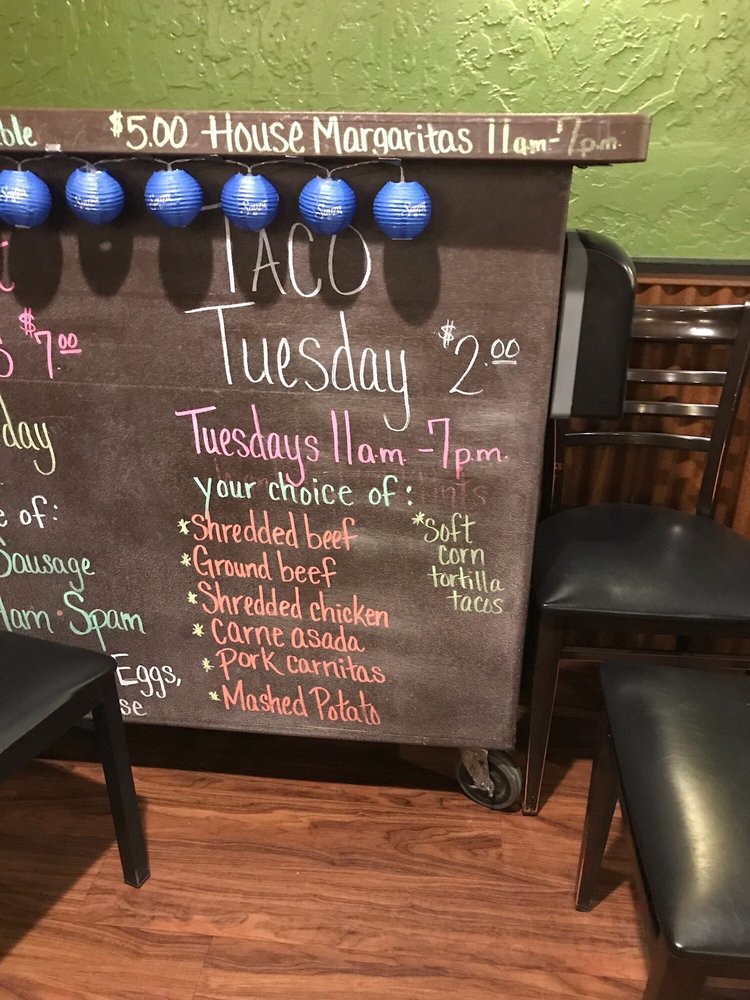 ble $5.00 House Margaritas 11am-7p.m.
TACO
Tuesday $2.00
Tuesdays 11am-7p.m.
your choice of:
*Shredded beef
*Ground beef
*Shredded chicken
*Carne asada
*Pork carnitas
*Mashed Potato
*Soft
corn
tortilla
tacos
$7.00
day
e of:
Sausage
Ham Spam
Eggs,
se